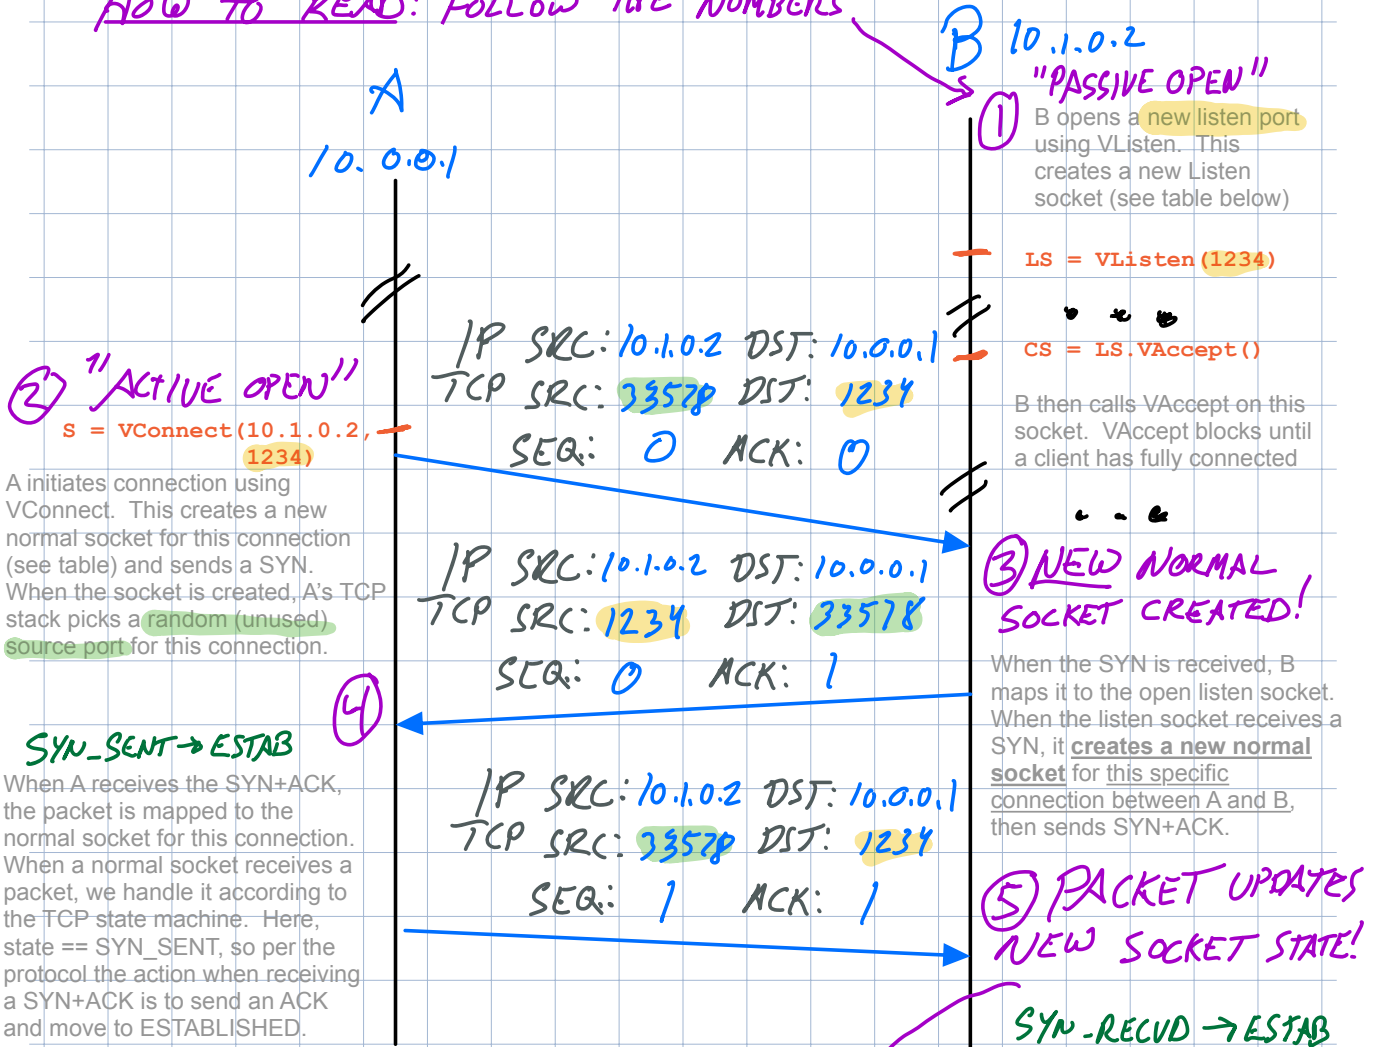 HOW TO READ: FOLLOW THE NUMBERS
A
10.0.0.1
B 10.1.0.2
"PASSIVE OPEN"
①
B opens a new listen port
using VListen. This
creates a new Listen
socket (see table below)
LS = VListen(1234)
...
CS = LS.VAccept()
B then calls VAccept on this
socket. VAccept blocks until
a client has fully connected
...
② "ACTIVE OPEN"
S = VConnect(10.1.0.2,
1234)
A initiates connection using
VConnect. This creates a new
normal socket for this connection
(see table) and sends a SYN.
When the socket is created, A's TCP
stack picks a random (unused)
source port for this connection.
IP SRC: 10.1.0.2 DST: 10.0.0.1
TCP SRC: 33578 DST: 1234
SEQ: 0 ACK: 0
③ NEW NORMAL
SOCKET CREATED!
When the SYN is received, B
maps it to the open listen socket.
When the listen socket receives a
SYN, it creates a new normal
socket for this specific
connection between A and B,
then sends SYN+ACK.
IP SRC: 10.1.0.2 DST: 10.0.0.1
TCP SRC: 1234 DST: 33578
SEQ: 0 ACK: 1
④
SYN_SENT → ESTAB
When A receives the SYN+ACK,
the packet is mapped to the
normal socket for this connection.
When a normal socket receives a
packet, we handle it according to
the TCP state machine. Here,
state == SYN_SENT, so per the
protocol the action when receiving
a SYN+ACK is to send an ACK
and move to ESTABLISHED.
IP SRC: 10.1.0.2 DST: 10.0.0.1
TCP SRC: 33578 DST: 1234
SEQ: 1 ACK: 1
⑤ PACKET UPDATES
NEW SOCKET STATE!
SYN_RECVD → ESTAB